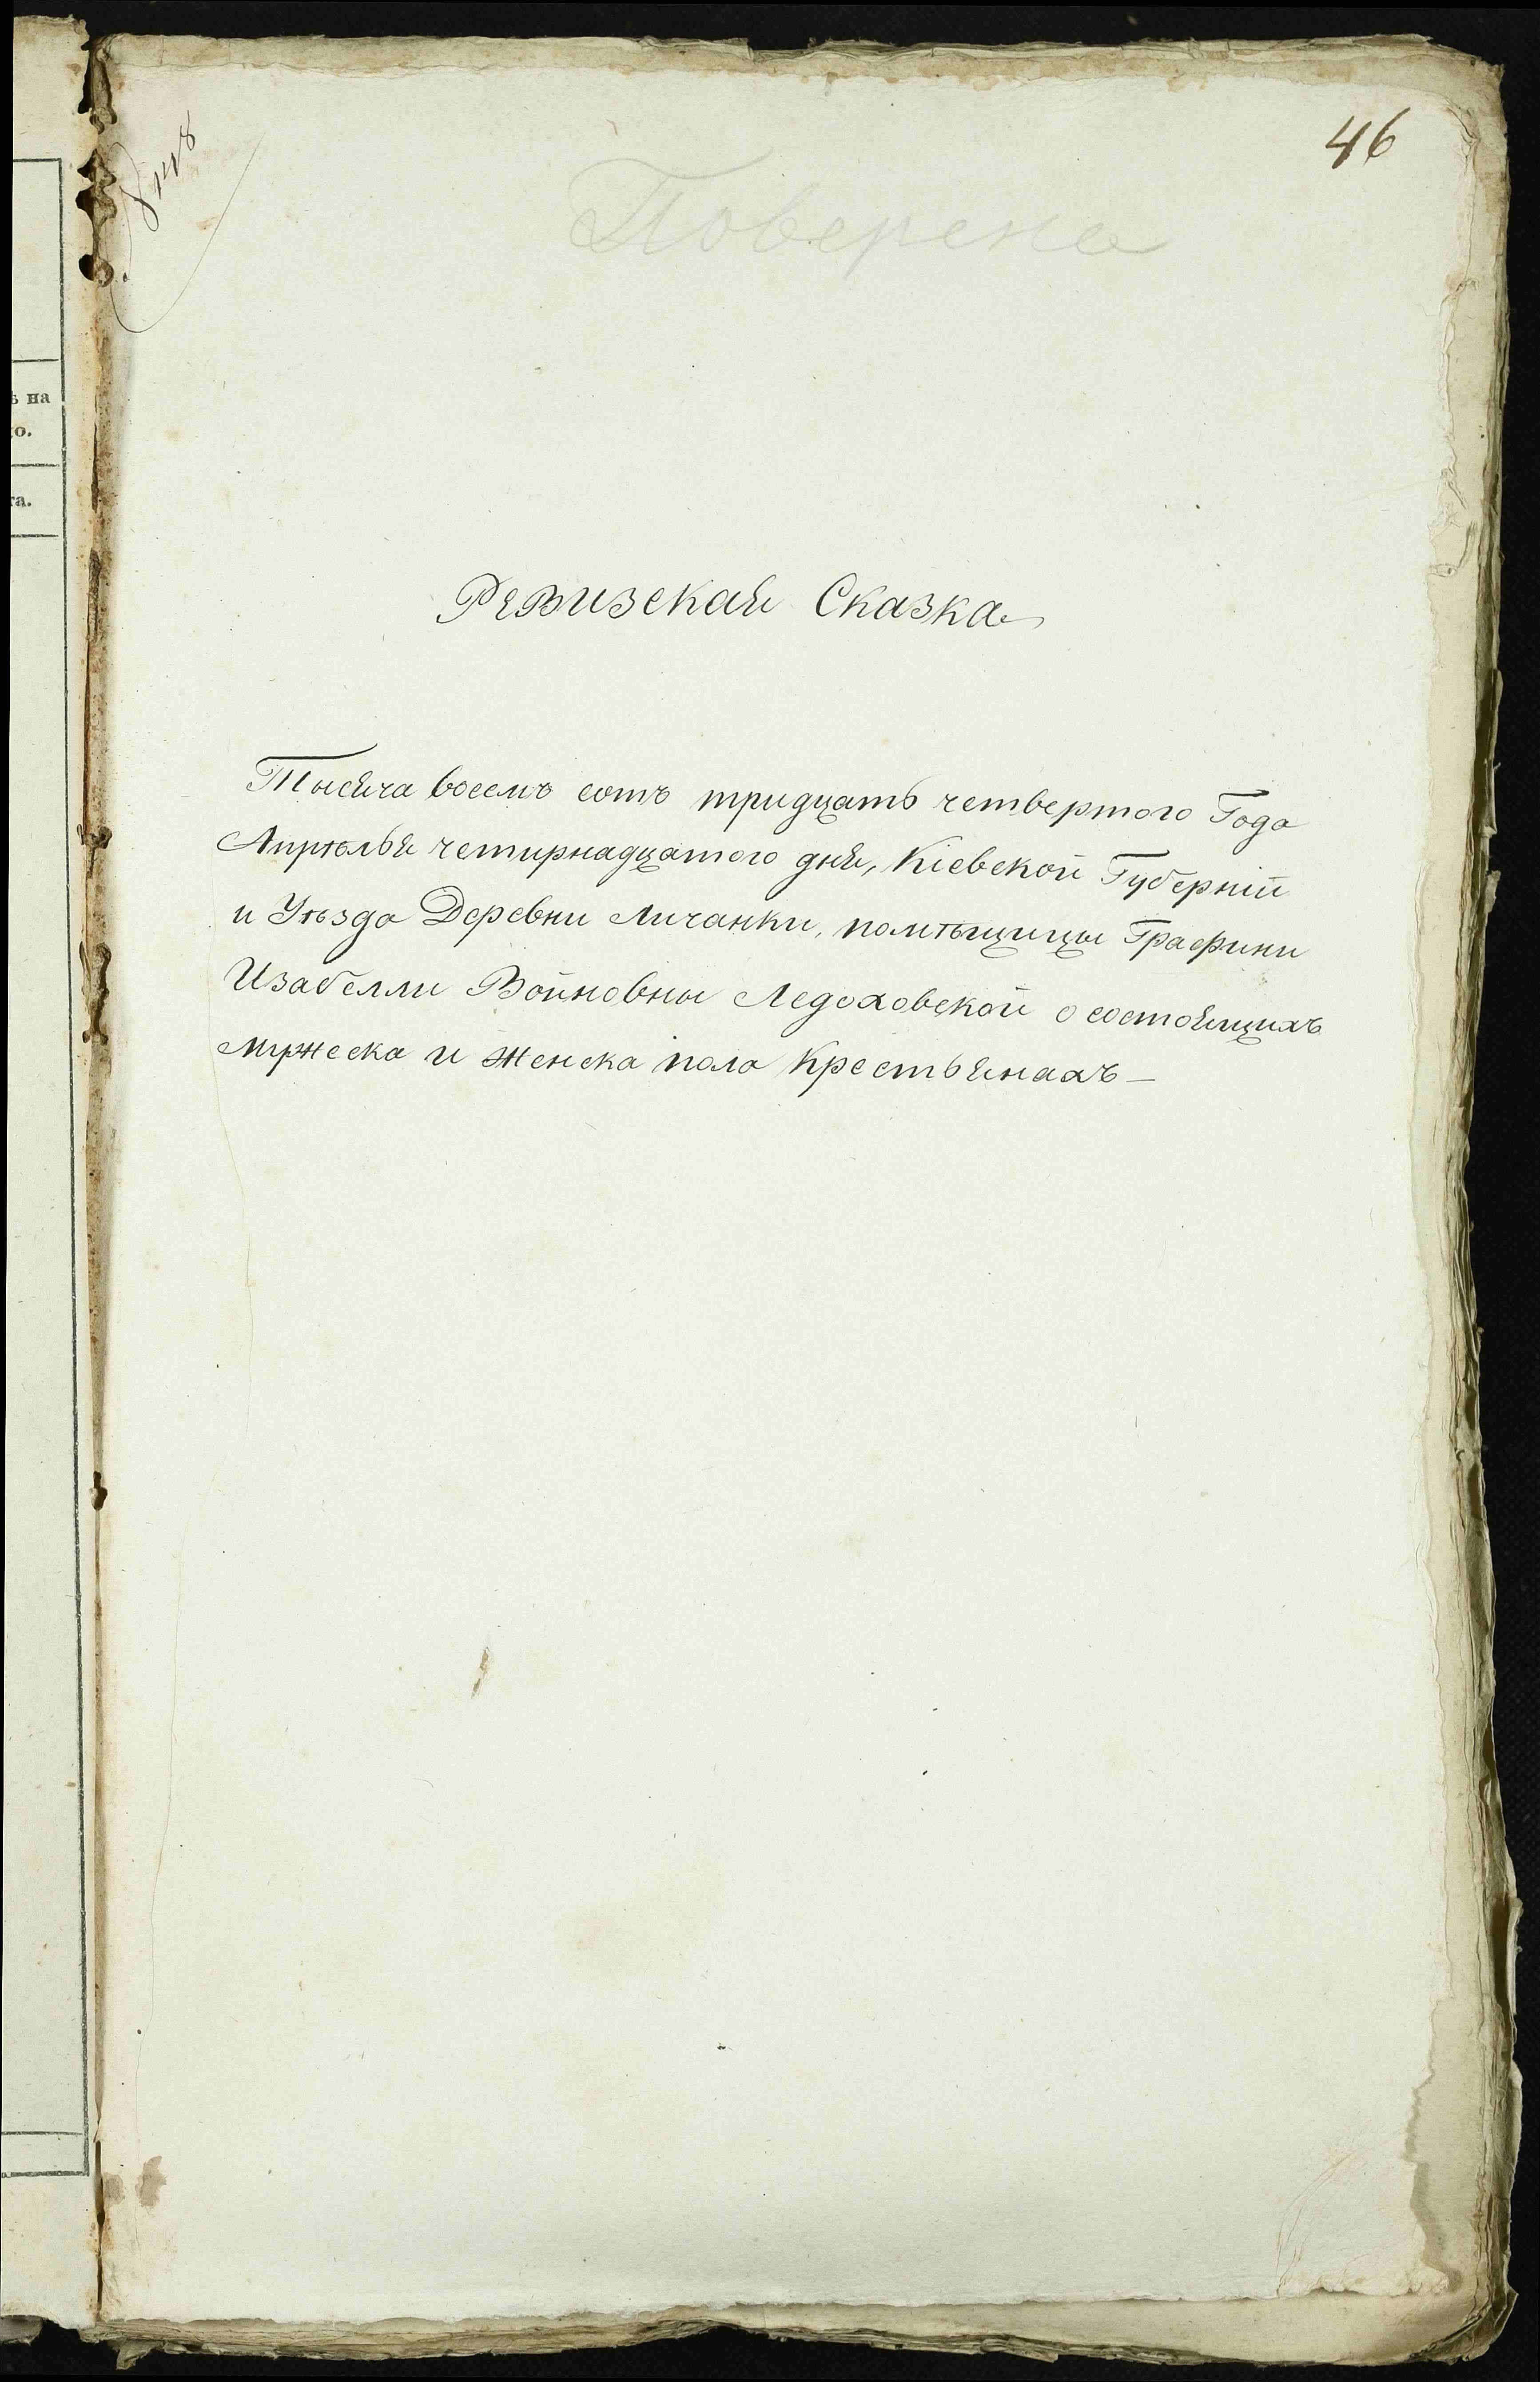 46
Поверена
Ревизская Сказка
Тысяча восемъ сотъ тридцать четвертого Года
Апрѣлья четирнадцатого дня, Кіевской Губерніи
и Уѣзда Деревни Личанки, помѣщицы Графини
Изабелли Войновны Ледоховской о состоящихъ
мужеска и женска пола Крестьянахъ —
ѣ на
о.
та.